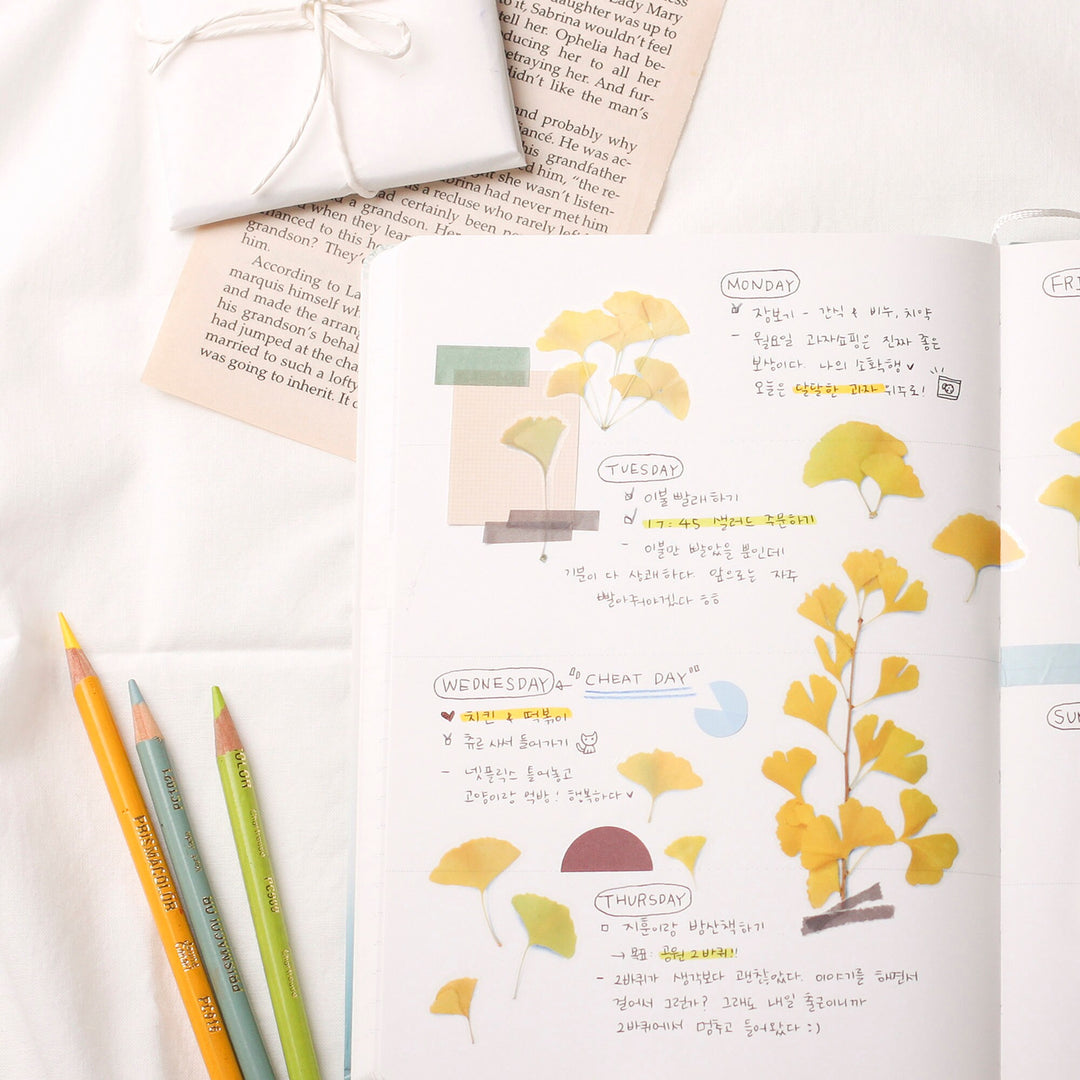 Lady Mary
daughter was up to
to it, Sabrina wouldn't feel
tell her. Ophelia had be-
ducing her to all her
etraying her. And fur-
didn't like the man's
and probably why
iancé. He was ac-
his grandfather
d him, "the re-
ght she wasn't listen-
rina had never met him
s a recluse who rarely left
ad certainly been
a grandson. Her
d when they lear
anced to this ho
grandson? They'd
him.
According to La
marquis himself wh
and made the arran
his grandson's behal
had jumped at the cha
married to such a lofty
was going to inherit. It
MONDAY
장보기 - 간식 & 비누, 치약
- 월요일 과자쇼핑은 진짜 좋은
보상이다. 나의 소확행
오늘은 달달한 과자 위주로!
TUESDAY
이불 빨래하기
17:45 샐러드 주문하기
- 이불만 빨았을 뿐인데
기분이 다 상쾌하다. 앞으로는 자주
빨아줘야겠다 ㅎㅎ
WEDNESDAY ← "CHEAT DAY"
치킨 & 떡볶이
츄르 사서 들어가기
- 넷플릭스 틀어놓고
고양이랑 먹방! 행복하다
THURSDAY
지훈이랑 밤산책하기
→ 목표: 공원 2바퀴!!
- 2바퀴가 생각보다 괜찮았다. 이야기를 하면서
걸어서 그런가? 그래도 내일 출근이니까
2바퀴에서 멈추고 들어왔다 :)
FRI
SUN
PRISMACOLOR
PRISMACOLOR